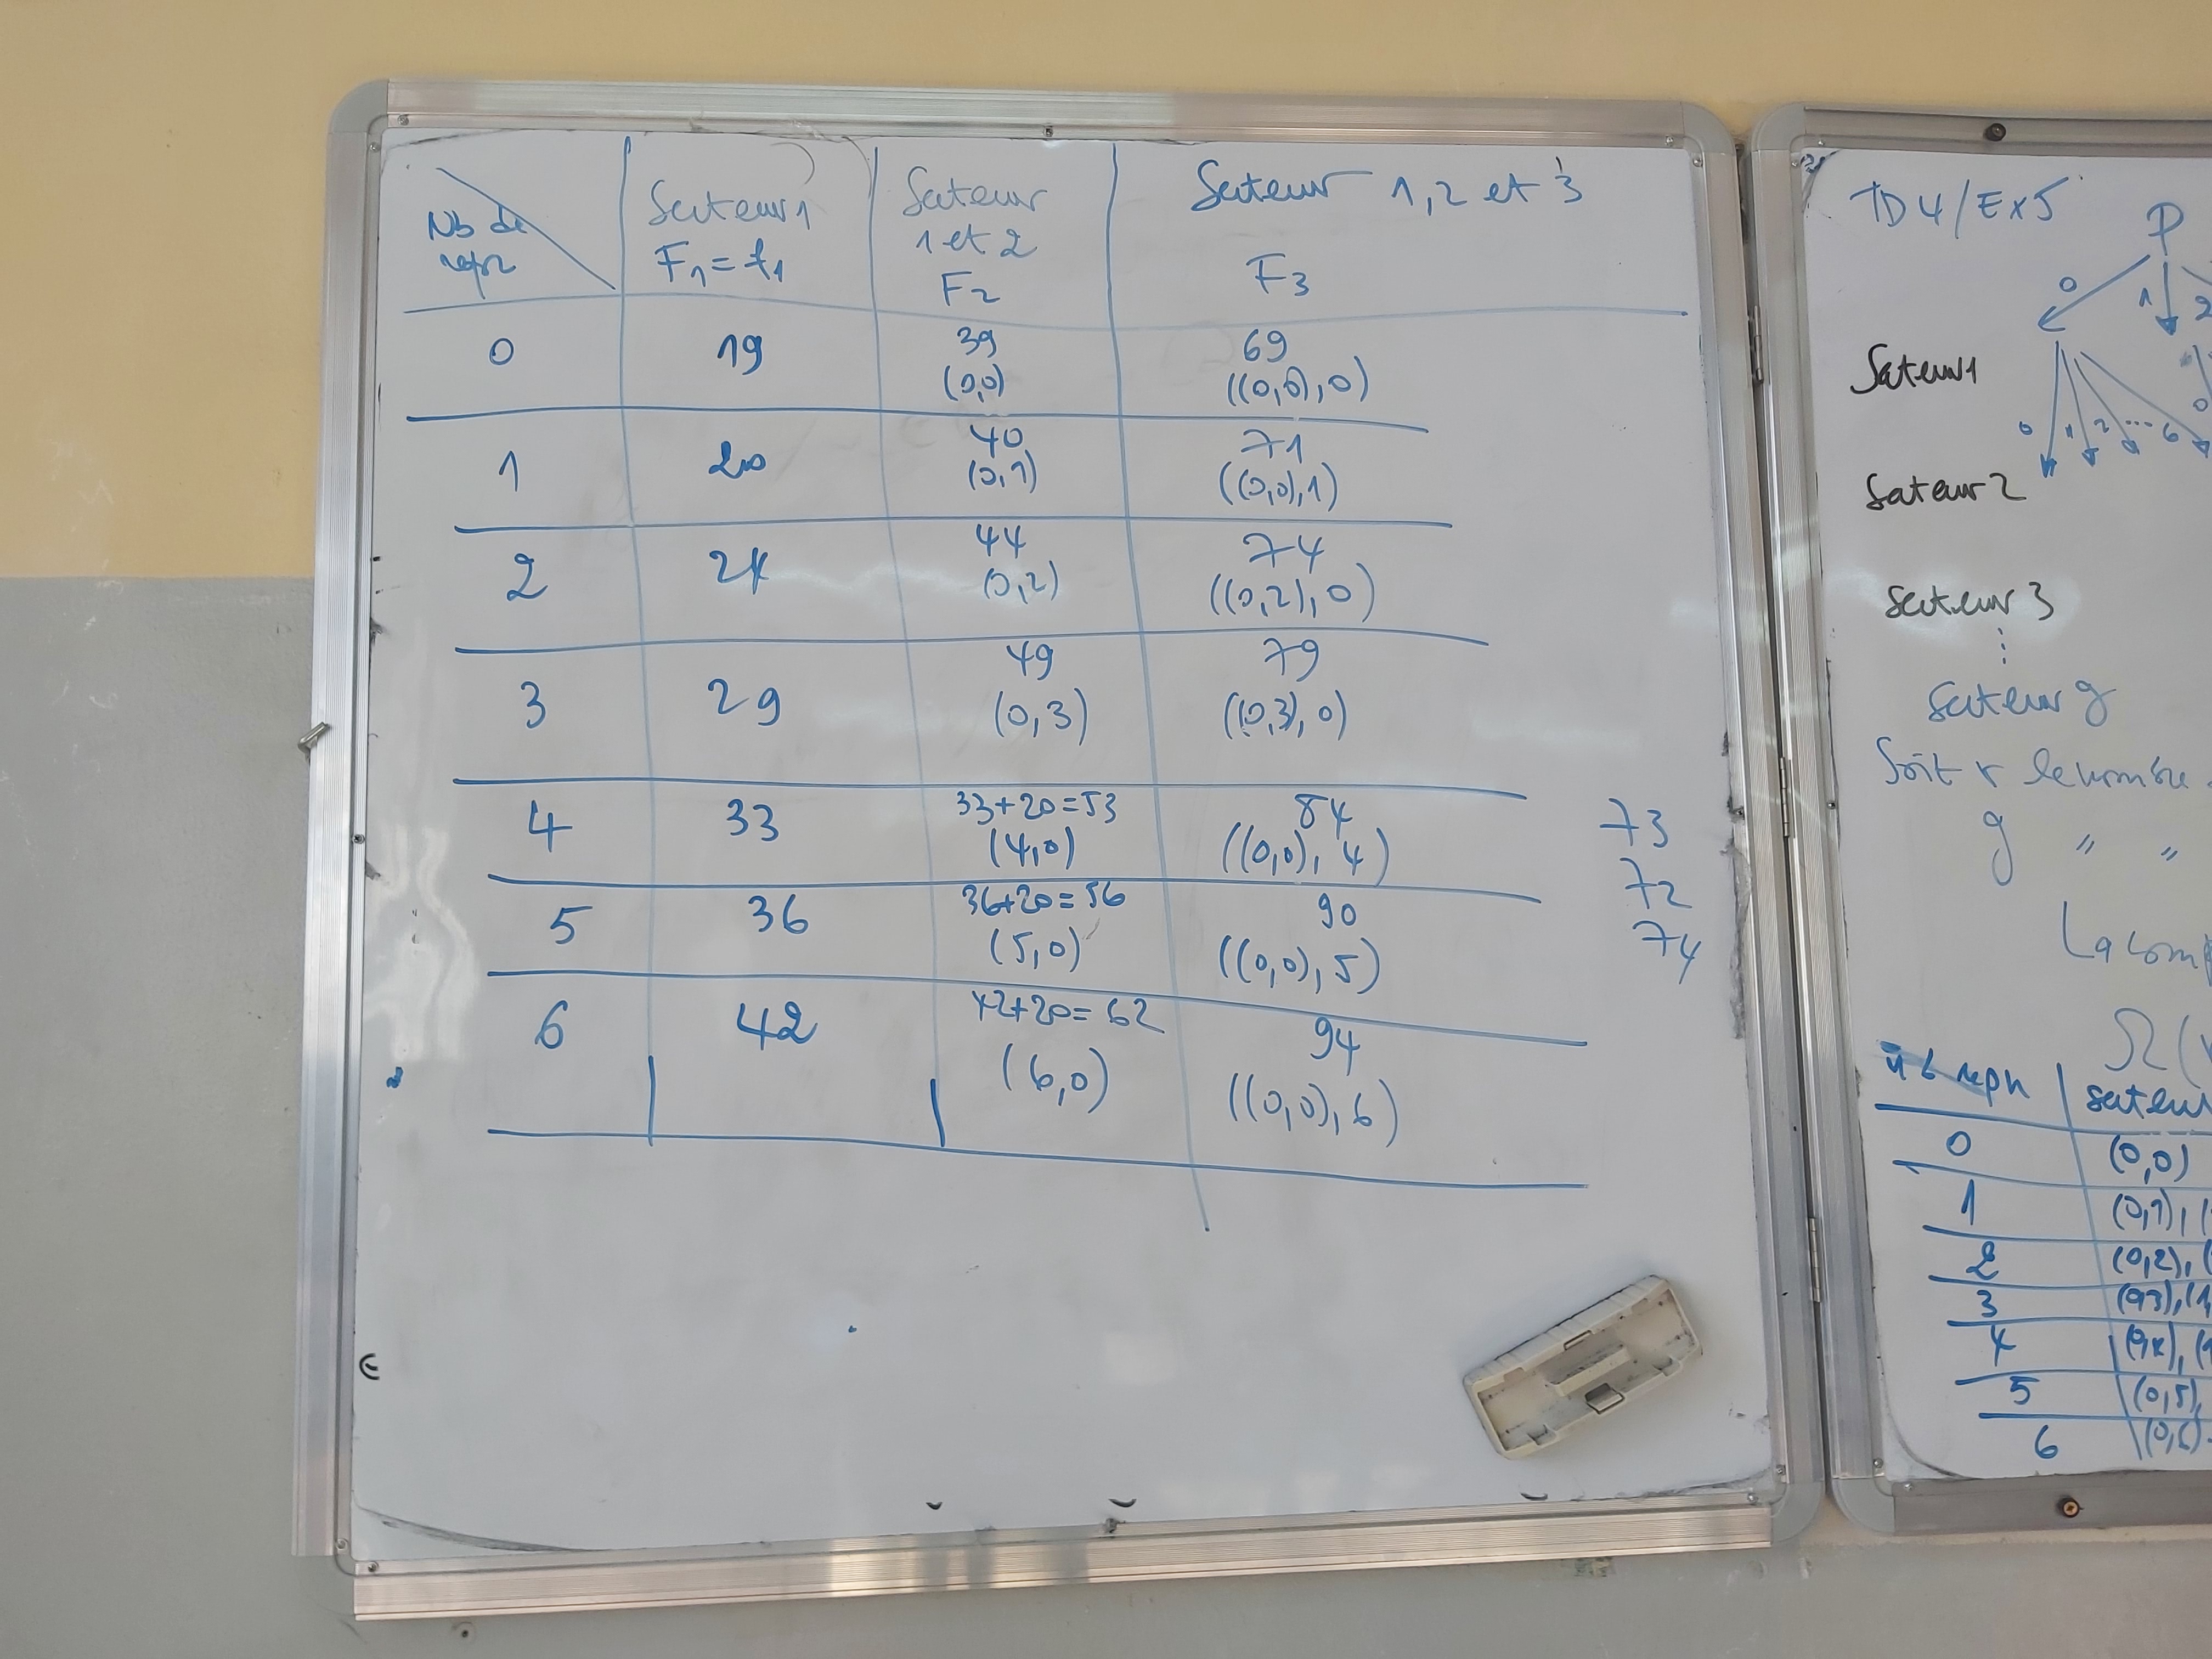 Nb de repr | Secteur 1 F1 = f1 | Secteur 1 et 2 F2 | Secteur 1, 2 et 3 F3
0 | 19 | 39 (0,0) | 69 ((0,0),0)
1 | 20 | 40 (0,1) | 71 ((0,0),1)
2 | 24 | 44 (0,2) | 74 ((0,2),0)
3 | 29 | 49 (0,3) | 79 ((0,3),0)
4 | 33 | 33+20=53 (4,0) | 84 ((0,0),4)
5 | 36 | 36+20=56 (5,0) | 90 ((0,0),5)
6 | 42 | 42+20=62 (6,0) | 94 ((0,0),6)
73
72
74
TD4/Ex5
P
0 1 2
Secteur 1
0 1 2 ... 6
0
Secteur 2
Secteur 3
⋮
Secteur g
Soit r le nombre
g " "
La com
Ω(
nb repr | Secteur
0 | (0,0)
1 | (0,1), (
2 | (0,2), (
3 | (0,3), (1,
4 | (0,4), (
5 | (0,5),
6 | (0,6)